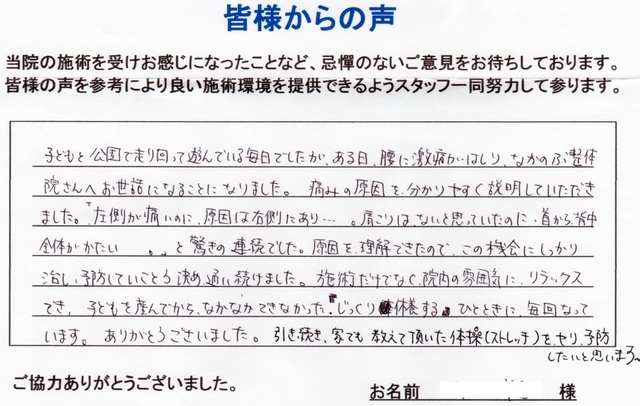 皆様からの声
当院の施術を受けお感じになったことなど、忌憚のないご意見をお待ちしております。
皆様の声を参考により良い施術環境を提供できるようスタッフ一同努力して参ります。
子どもと公園で走り回って遊んでいる毎日でしたが、ある日、腰に激痛がはしり、なかのぶ整体
院さんへお世話になることになりました。痛みの原因を、分かりやすく説明していただき
ました。「左側が痛いのに、原因は右側にあり…。肩こりは、ないと思っていたのに、首から、背中
全体がかたい 。」と驚きの連続でした。原因を、理解できたので、この機会にしっかり
治し、予防していこうと決め、通い続けました。施術だけでなく、院内の雰囲気に、リラックス
でき、子どもを産んでから、なかなかできなかった、じっくり休養する ひとときに、毎回なって
います。ありがとうございました。引き続き、家でも教えて頂いた体操(ストレッチ)を、やり、予防
したいと思いまう。
ご協力ありがとうございました。
お名前 様